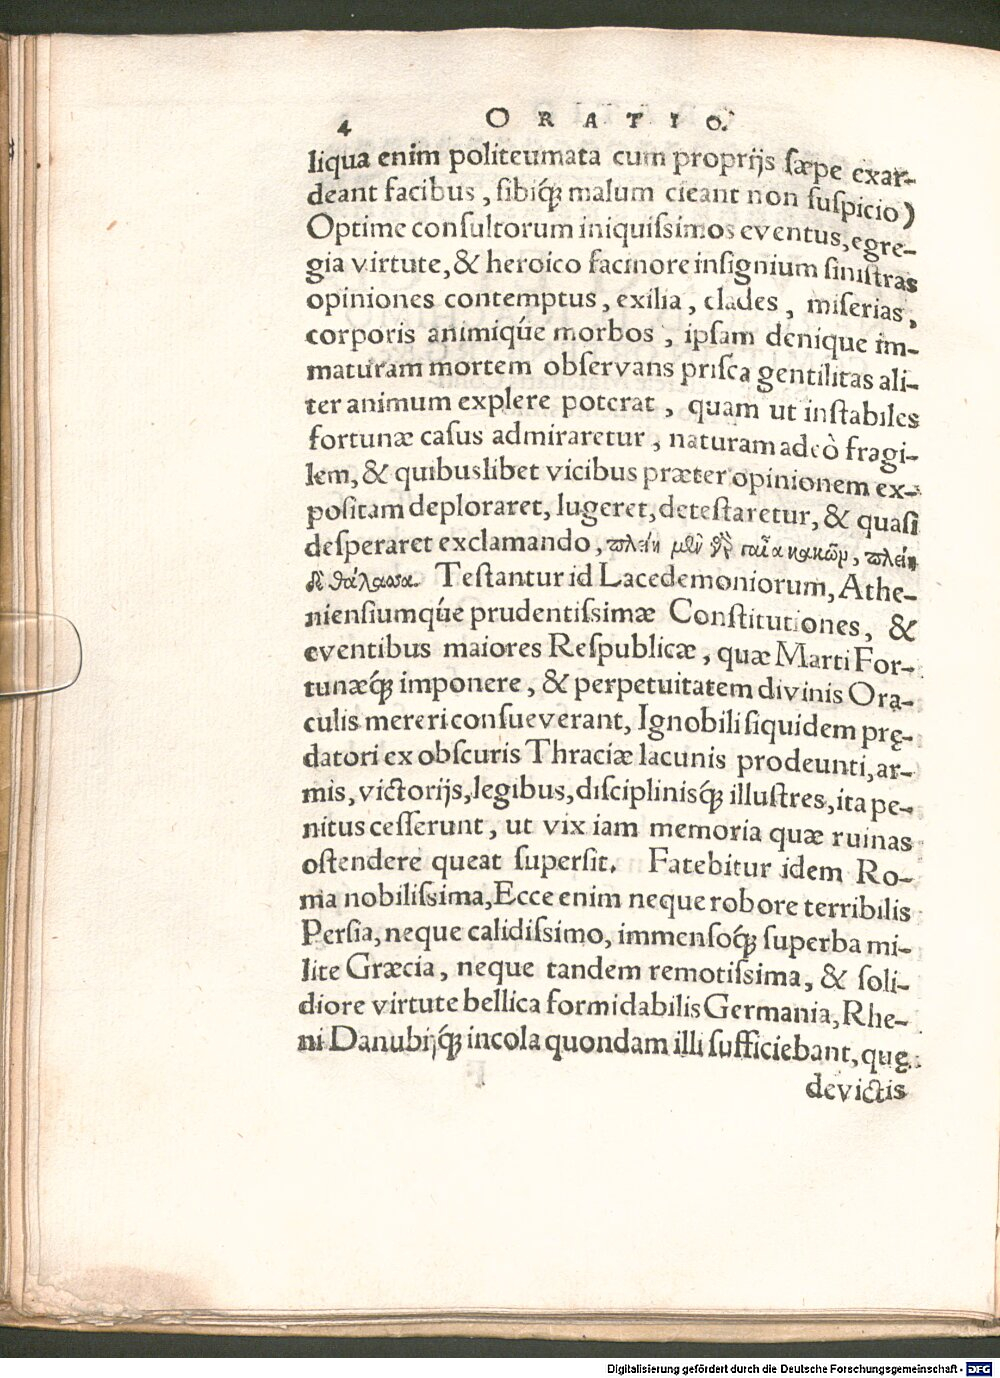 4 ORATIO.
liqua enim politeumata cum proprijs sæpe exar-
deant facibus, sibiq́; malum cieant non suspicio)
Optime consultorum iniquissimos eventus, egre-
gia virtute, & heroico facinore insignium sinistras
opiniones contemptus, exilia, clades, miserias,
corporis animiqúe morbos, ipsam denique im-
maturam mortem observans prisca gentilitas ali-
ter animum explere poterat, quam ut instabiles
fortunæ casus admiraretur, naturam adeò fragi-
lem, & quibuslibet vicibus præter opinionem ex-
positam deploraret, lugeret, detestaretur, & quasi
desperaret exclamando, πλείη μὲν γὸ γαῖα κακῶν, πλείη
δὲ θάλασσα. Testantur id Lacedemoniorum, Athe-
niensiumqúe prudentissimæ Constitutiones, &
eventibus maiores Respublicæ, quæ Marti For-
tunæq́; imponere, & perpetuitatem divinis Ora-
culis mereri consueverant, Ignobili siquidem prę-
datori ex obscuris Thraciæ lacunis prodeunti, ar-
mis, victorijs, legibus, disciplinisq́; illustres, ita pe-
nitus cesserunt, ut vix iam memoria quæ ruinas
ostendere queat supersit. Fatebitur idem Ro-
ma nobilissima, Ecce enim neque robore terribilis
Persia, neque calidissimo, immensoq́; superba mi-
lite Græcia, neque tandem remotissima, & soli-
diore virtute bellica formidabilis Germania, Rhe-
ni Danubijq́; incola quondam illi sufficiebant, quę
devictis
Digitalisierung gefördert durch die Deutsche Forschungsgemeinschaft - DFG